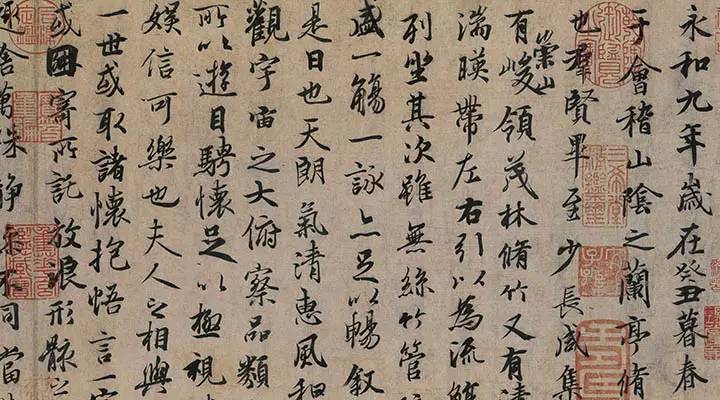 永和九年歲在癸丑暮春
于會稽山陰之蘭亭脩
也羣賢畢至少長咸集
有崇山峻領茂林脩竹又有清
湍暎帶左右引以為流觴
列坐其次雖無絲竹管
盛一觴一詠亦足以暢叙
是日也天朗氣清惠風和
觀宇宙之大俯察品類
所以遊目騁懷足以極視
娛信可樂也夫人之相與
一世或取諸懷抱悟言一室
或因寄所託放浪形骸之
趣舍萬殊靜躁不同當